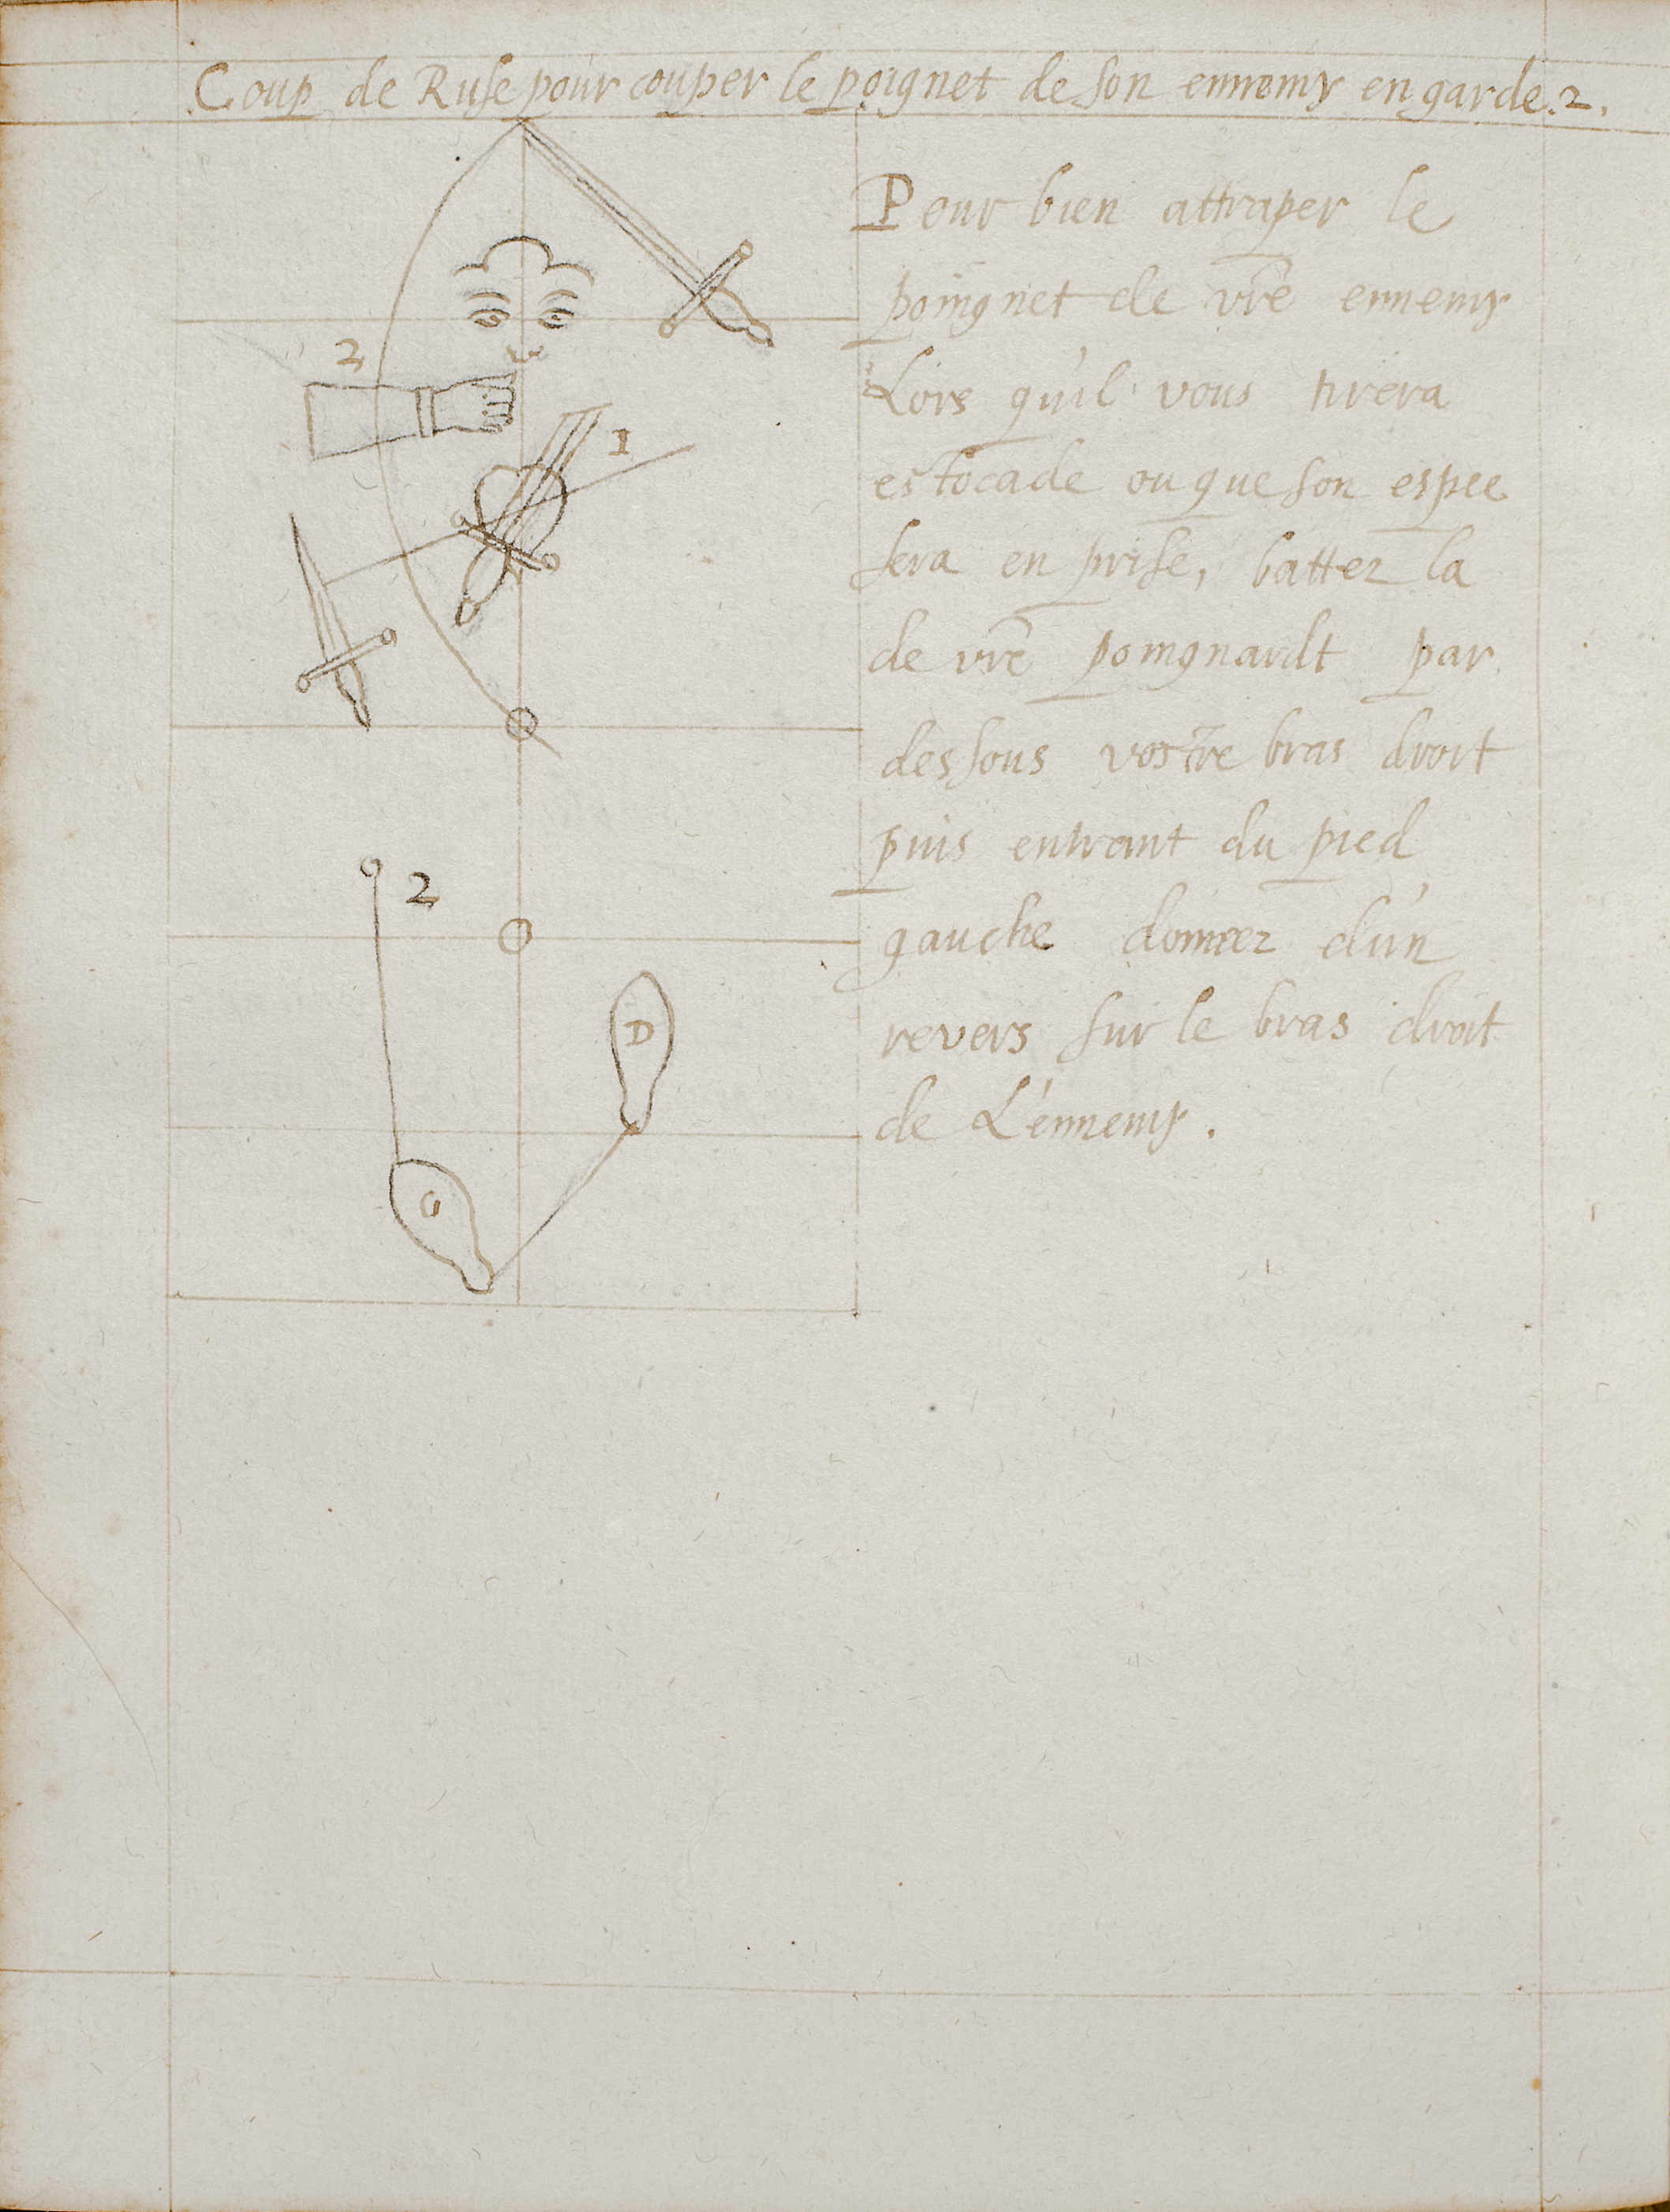 Coup de Ruse pour couper le poignet de son ennemy en garde. 2.
Pour bien attraper le
poingnet de vr̃e ennemy
Lors qu'il vous tirera
estocade ou que son espee
sera en prise, battez la
de vr̃e poingnardt par
dessous vostre bras droit
puis entrant du pied
gauche donnez d'un
revers sur le bras droit
de L'ennemy.
2
1
2
D
G